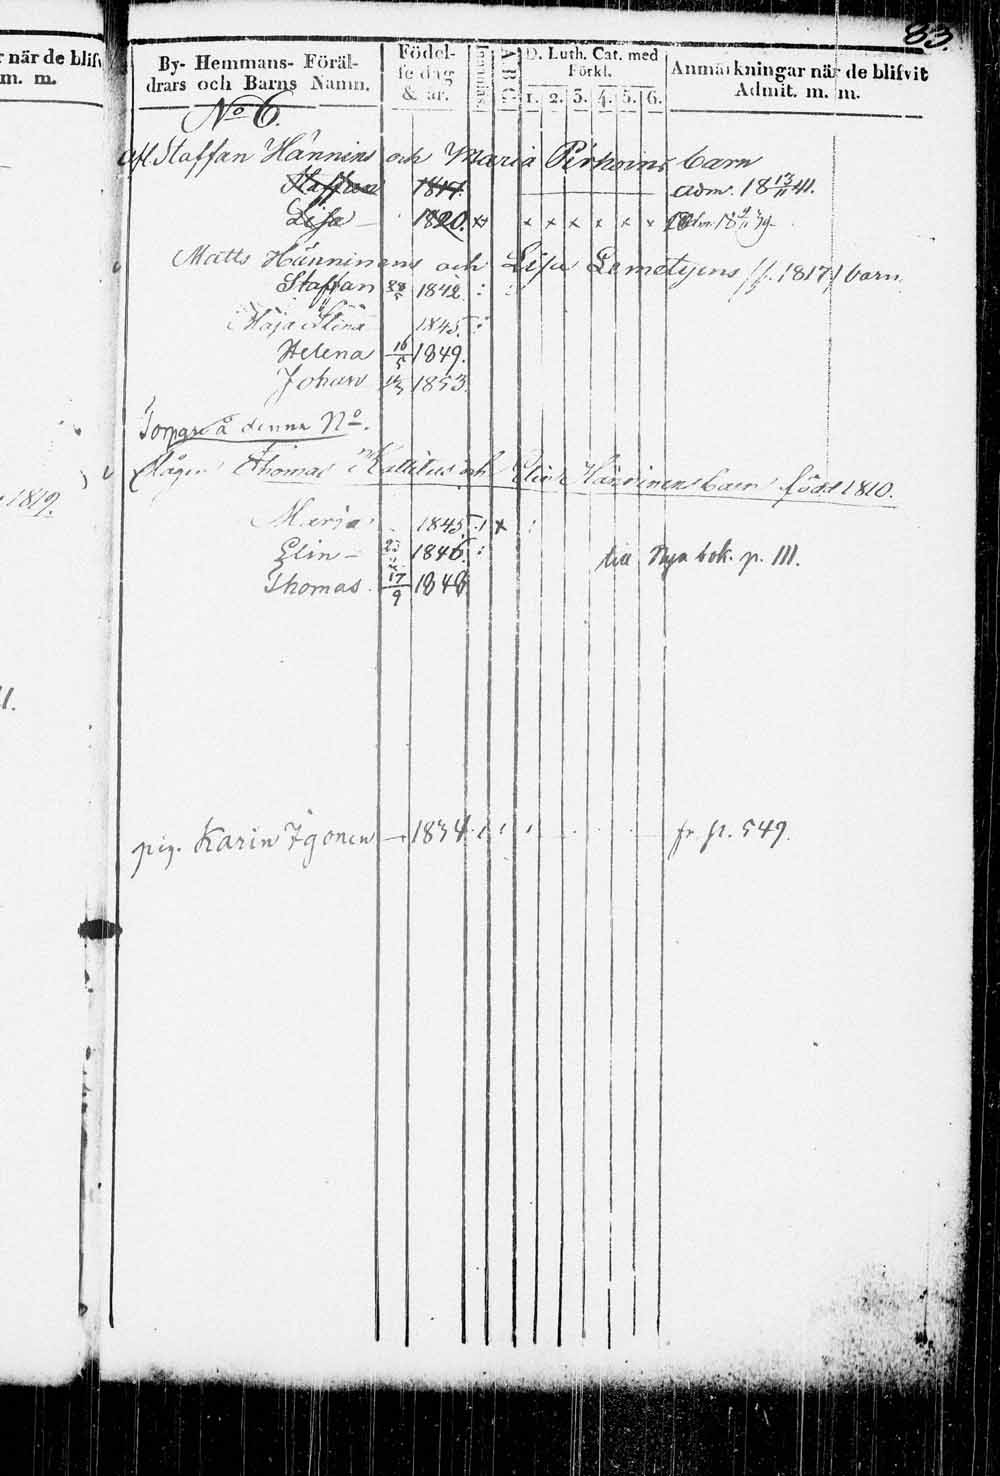 83.
när de blifv
m. m.
By- Hemmans- Föräl-
drars och Barns Namn.
Födel-
se dag
& år.
A B C
D. Luth. Cat. med
Förkl.
1. 2. 3. 4. 5. 6.
Anmärkningar när de blifvit
Admit. m. m.
No 6.
afl Staffan Hännins och Maria Pirhoins barn
Staffan 1817. adm. 18 13/11 41.
Lisa – 1820. x x x x x x x
Matts Hänninens och Lisa Lemetyens /f. 1817/ barn
Staffan 28 1842 :
Maja Stina 1845. :
Helena 16/5 1849.
Johan 1853.
Torpare å denna No.
Måg Thomas och Elin Hänninens barn född 1810.
1819.
Maria 1845. x
Elin – 1846. : till Nya bok. p. 111.
Thomas 17/9 1848
1.
pig. Karin Igonen – 1834 fr. p. 549.